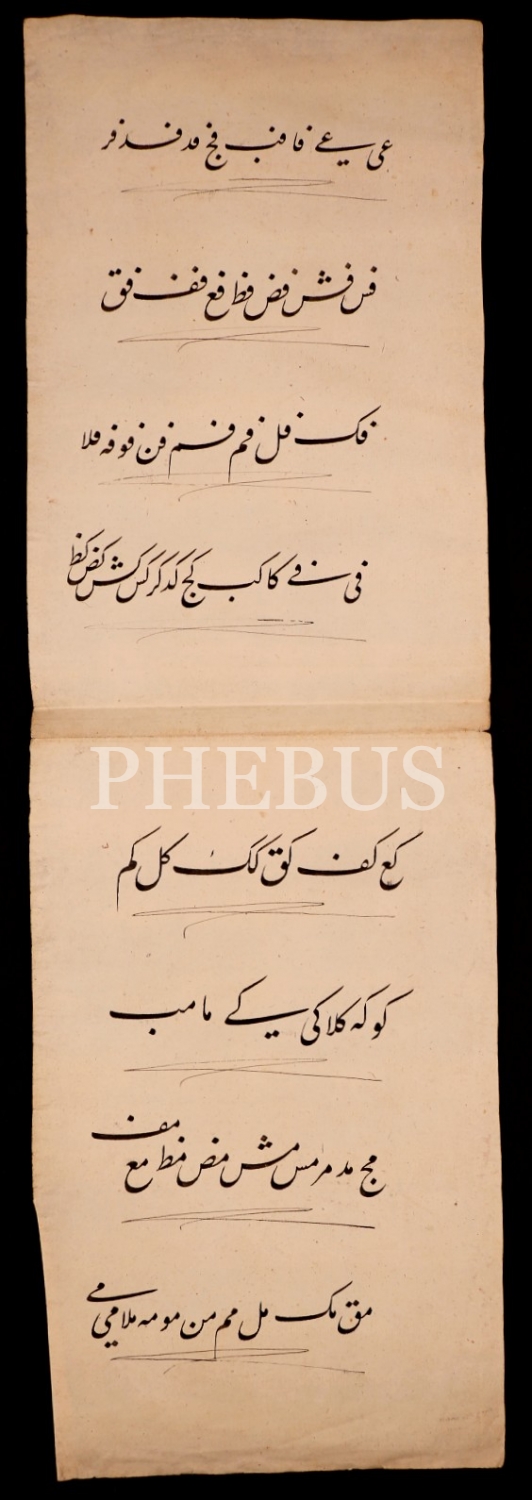 عی عے فا فب فج فد فذ فر
فس فش فض فظ فع فف فق
فک فل فم فم فن فو فه فلا
فی فے کا کب کج کد کر کس کش کض کظ
PHEBUS
کع کف کق کک کل کم
کو که کلا کی کے ما مب
مج مد مر مس مش مض مظ مع مف
مق مک مل مم من مو مه ملا می مے